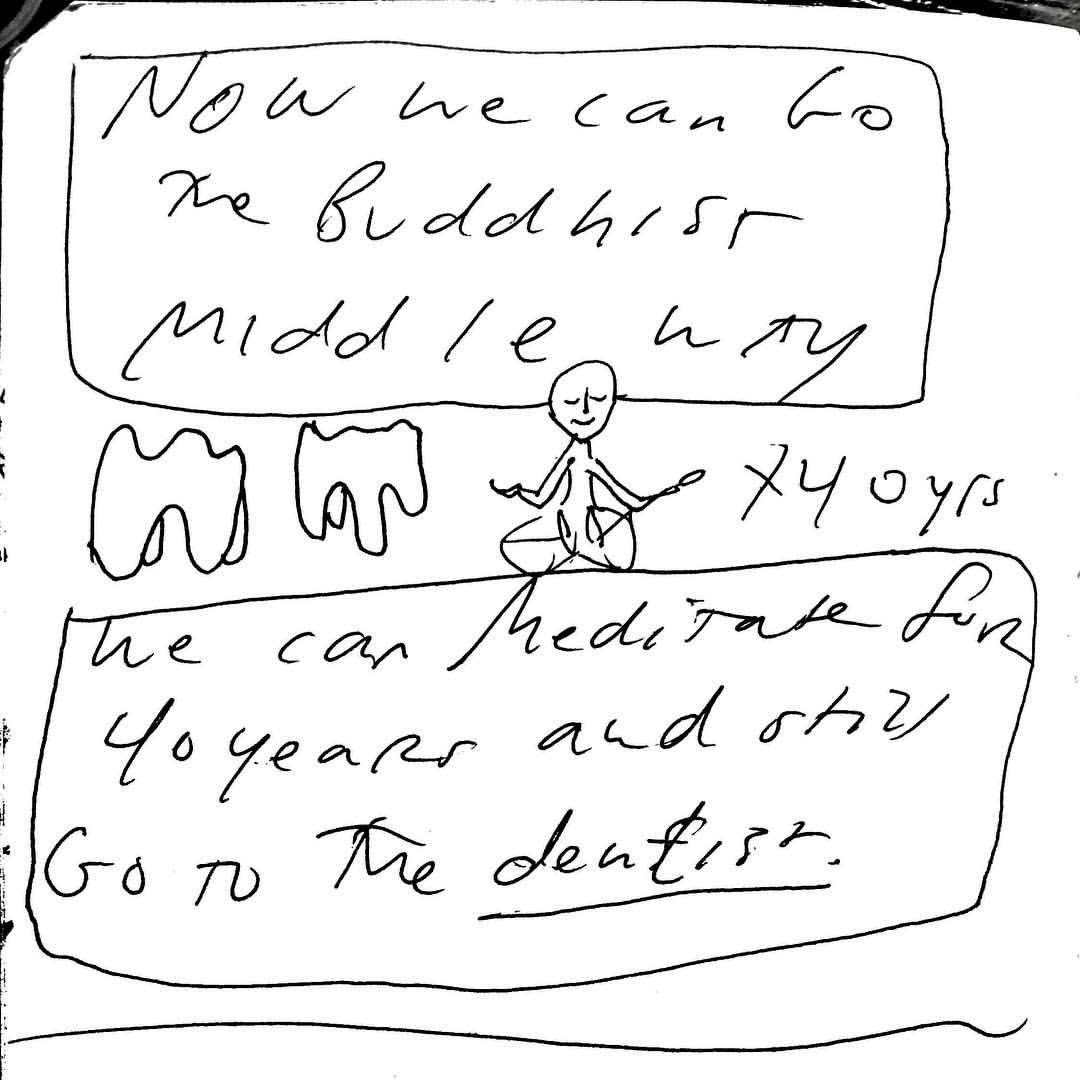 Now we can Go
The Buddhist
Middle way
x40yrs
We can Meditate for
40 years and still
Go to The dentist.